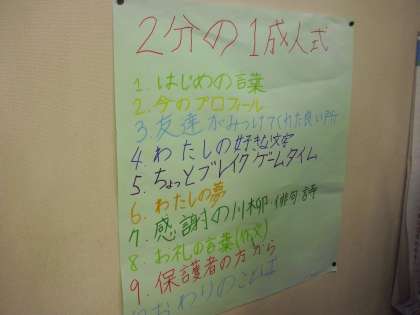 2分の1成人式
1. はじめの言葉
2. 今のプロフィール
3. 友達がみつけてくれた良い所
4. わたしの好きな文字
5. ちょっとブレイク ゲームタイム
6. わたしの夢
7. 感謝の川柳・俳句・詩
8. お礼の言葉(作文)
9. 保護者の方から
おわりのことば